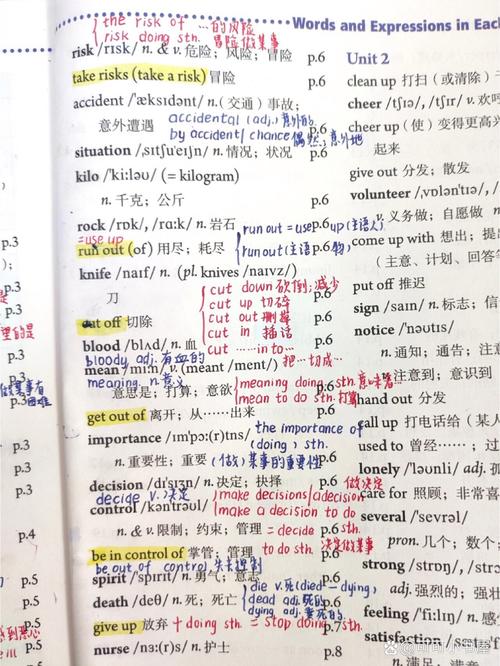 the risk of …的风险
risk doing sth. 冒险做某事
Words and Expressions in Eac
risk /rɪsk/ n. & v. 危险；风险；冒险 p.6
take risks (take a risk) 冒险 p.6
accident /ˈæksɪdənt/ n.（交通）事故；
意外遭遇 p.6
accidental (adj.) 意外的
by accident/ chance 偶然，意外地
situation /ˌsɪtʃuˈeɪʃn/ n. 情况；状况 p.6
kilo /ˈkiːləʊ/ (= kilogram)
n. 千克；公斤 p.6
rock /rɒk/, /rɑːk/ n. 岩石 p.6
=use up
run out (of) 用尽；耗尽 p.6
run out = use up (主语人)
run out (主语 物)
knife /naɪf/ n. (pl. knives /naɪvz/)
刀 p.6
cut down 砍倒；减少
cut up 切碎
cut out 删掉
cut in 插话
cut … in … to 把…切成…
cut off 切除 p.6
blood /blʌd/ n. 血 p.6
bloody adj. 有血的
mean /miːn/ v. (meant /ment/)
meaning. n. 意义
意思是；打算；意欲 p.6
meaning doing sth. 意味着…
mean to do sth. 打算
get out of 离开；从……出来 p.6
the importance of
(doing) sth.
importance /ɪmˈpɔː(r)tns/
n. 重要性；重要 p.6
(做)某事的重要性
decision /dɪˈsɪʒn/ n. 决定；抉择 p.6
decide v. 决定
做决定
make decisions/a decision
make a decision to do
control /kənˈtrəʊl/
n. & v. 限制；约束；管理 p.6
= decide sth.
to do sth. 决定做某事
be in control of 掌管；管理 p.6
be out of control 失去控制
spirit /ˈspɪrɪt/ n. 勇气；意志 p.6
death /deθ/ n. 死；死亡 p.6
die v. 死 (died - dying)
dead adj. 死的
dying adj. 垂死的
give up 放弃 p.7
+ doing sth. = stop doing sth.
nurse /nɜː(r)s/ n. 护士 p.8
Unit 2
clean up 打扫（或清除）干
cheer /tʃɪə/, /tʃɪr/ v. 欢呼
cheer up（使）变得更高兴
起来
give out 分发；散发
volunteer /ˌvɒlənˈtɪə/, /
v. 义务做；自愿做 n.
come up with 想出；提出
（主意、计划、回答等
put off 推迟
sign /saɪn/ n. 标志；信
notice /ˈnəʊtɪs/
n. 通知；通告；注意
v. 注意到；意识到
hand out 分发
call up 打电话给（某人
used to 曾经……；过
lonely /ˈləʊnli/ adj. 孤
care for 照顾；非常喜
several /ˈsevrəl/
pron. 几个；数个；
strong /strɒŋ/, /strɔ
adj. 强烈的；强壮
feeling /ˈfiːlɪŋ/ n. 感
satisfaction /ˌsætɪsˈfæ
n. 满足；满意
p.3
p.3
p.3
p.3
p.3
p.3
p.3
p.3
p.4
p.5
p.5
p.5